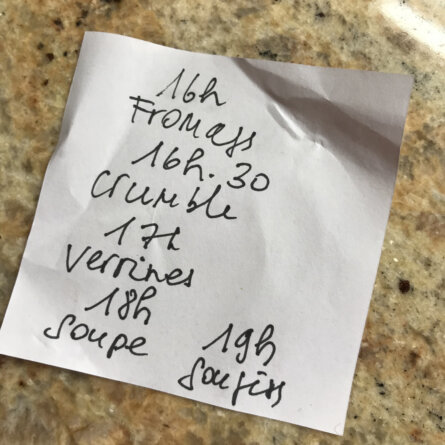 16h
Fromages
16h.30
Crumble
17h
Verrines
18h
Soupe
19h